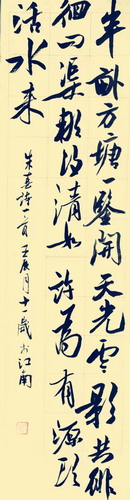 半畝方塘一鑒開天光雲影共徘
徊問渠那得清如許為有源頭
活水來
朱熹詩一首壬辰月十一歲於江南